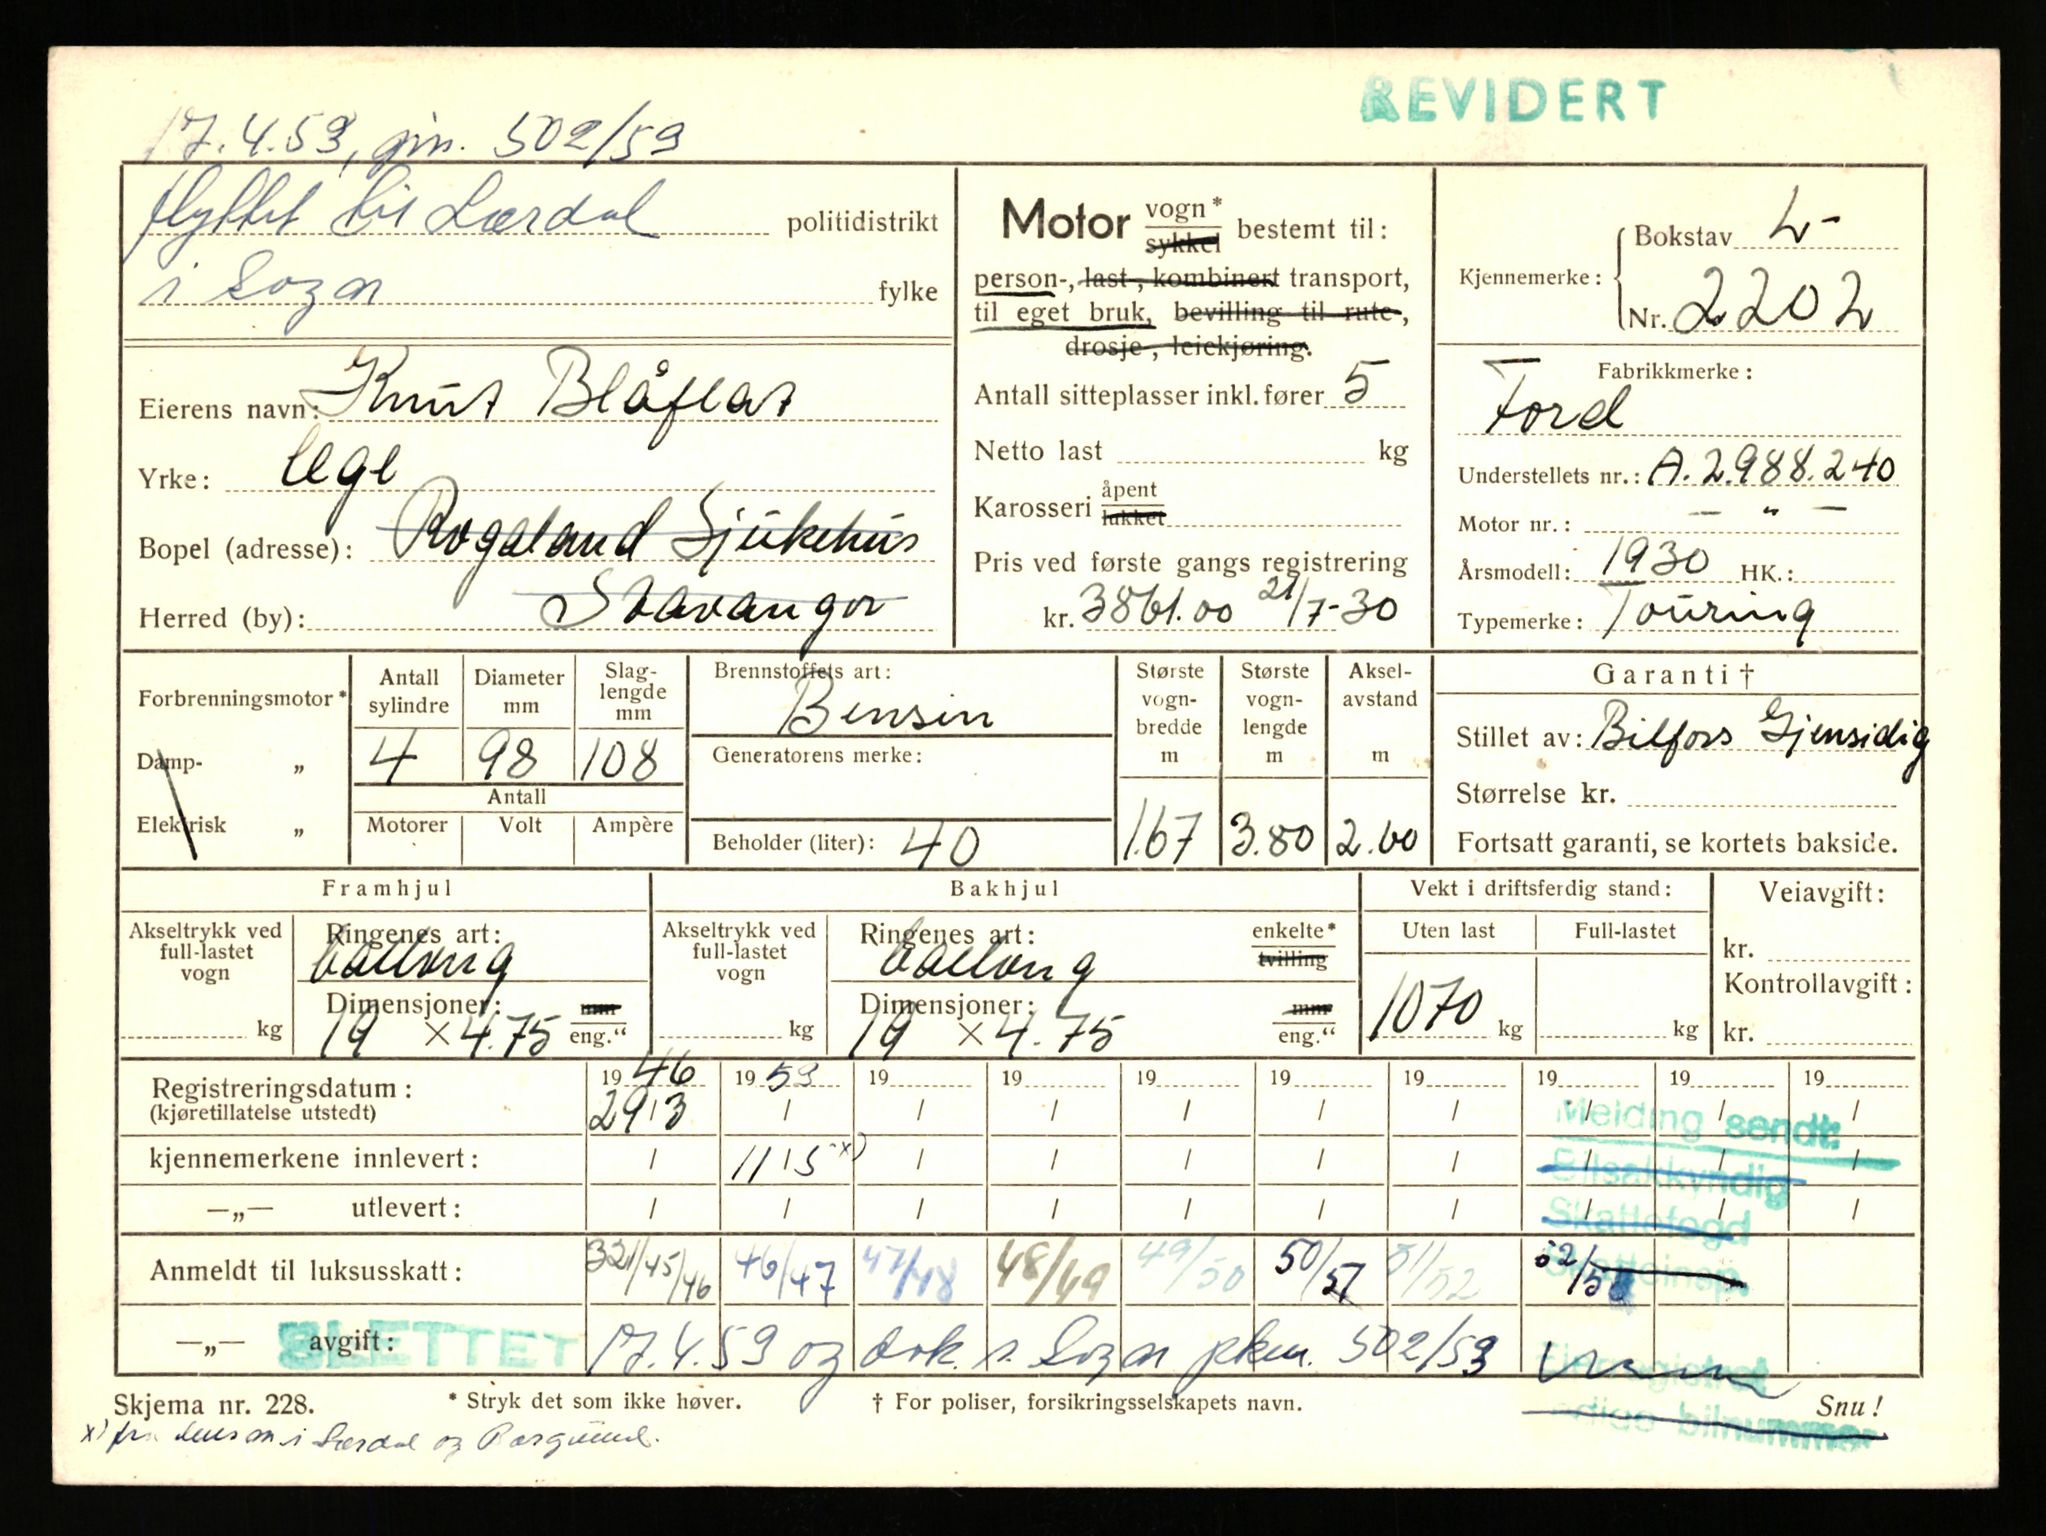 REVIDERT
17.4.53, gjn. 502/53
flyttet til Lærdal politidistrikt
i Sogn fylke
Motor vogn* sykkel bestemt til:
person-, last-, kombinert transport,
til eget bruk, bevilling til rute-,
drosje-, leiekjøring.
Antall sitteplasser inkl. fører 5
Netto last kg
Karosseri åpent lukket
Pris ved første gangs registrering
kr. 3861.00 21/7-30
Kjennemerke: Bokstav L-
Nr. 2202
Fabrikkmerke:
Ford
Understellets nr.: A.2.988.240
Motor nr.: — „ —
Årsmodell: 1930 HK.:
Typemerke: Touring
Eierens navn: Knut Blåflat
Yrke: lege
Bopel (adresse): Rogaland Sjukehus
Herred (by): Stavanger
Forbrenningsmotor*
Damp- „
Elektrisk „
Antall sylindre Diameter mm Slag-lengde mm
4 98 108
Antall
Motorer Volt Ampère
Brennstoffets art:
Bensin
Generatorens merke:
Beholder (liter): 40
Største vogn-bredde m Største vogn-lengde m Aksel-avstand m
1.67 3.80 2.60
Garanti †
Stillet av: Bilfors Gjensidig
Størrelse kr.
Fortsatt garanti, se kortets bakside.
Framhjul
Akseltrykk ved full-lastet vogn kg
Ringenes art:
ballong
Dimensjoner: mm
19 × 4.75 eng.“
Bakhjul
Akseltrykk ved full-lastet vogn kg
Ringenes art: enkelte* tvilling
ballong
Dimensjoner: mm
19 × 4.75 eng.“
Vekt i driftsferdig stand:
Uten last Full-lastet
1070 kg kg
Veiavgift:
kr.
Kontrollavgift:
kr.
Registreringsdatum: 1946 1953 19 19 19 19 19 19 19 19
(kjøretillatelse utstedt) 29/3 / / / / / / / / /
kjennemerkene innlevert: / 11/5 -x) / / / / / / / /
—„— utlevert: / / / / / / / / / /
Anmeldt til luksusskatt: 321/45/46 46/47 47/48 48/49 49/50 50/51 51/52 52/53
—„— avgift: 17.4.53 og dok. s. Sogn pkm. 502/53
SLETTET
Melding sendt:
Bilsakkyndig
Skattefogd
Skatteinsp.
ledige bilnummer
Skjema nr. 228. * Stryk det som ikke høver. † For poliser, forsikringsselskapets navn. Snu!
x) fra lensm. i Lærdal og Borgund.